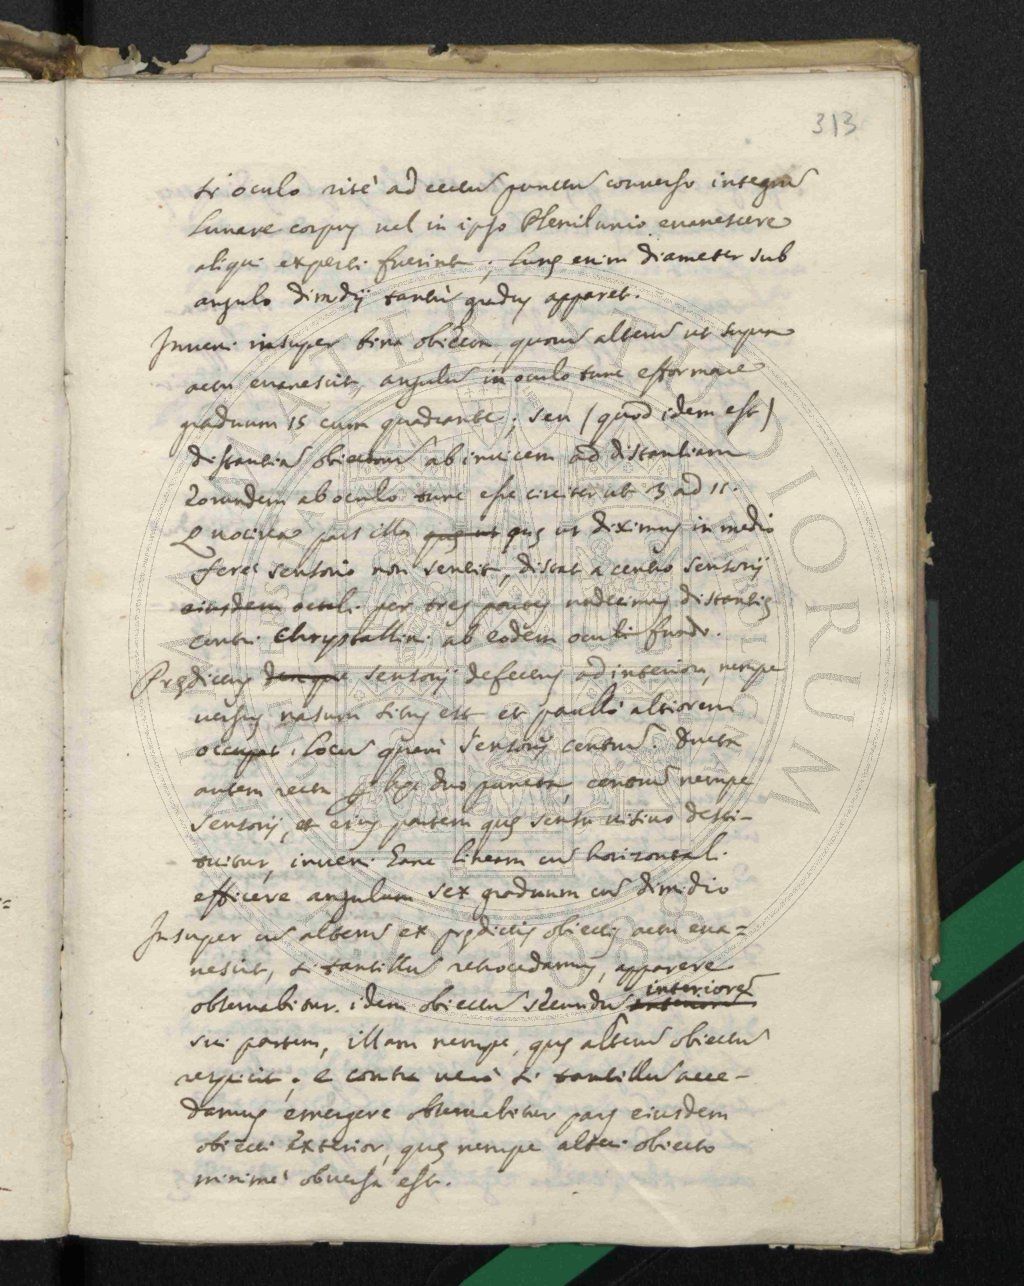 313
si oculo rite ad certũ punctũ converso integrũ
Lunare corpus vel in ipso Plenilunio evanescere
aliqui experti fuerint; lunę enim diameter sub
angulo dimidij tantũ gradus apparet.
Inveni insuper bina obiecta, quorũ alterũ ut supra
actu evanescit, angulũ in oculo tunc efformare
graduum 15 cum quadrante; seu (quod idem est)
distantiã obiectorũ ab invicem ad distantiam
Eorundem ab oculo tunc esse circiter ut 3 ad 11.
Quocirca pars illa quę ut quę ut diximus in medio
fere sensorio non sentit, distat a centro sensorij
eiusdem oculi per tres partes undecimas distantię
centri Chrystallini ab eodem oculi fundo.
Prędictus denique sensorij defectus ad interiora, nempe
versus nasum situs est et paullò altiorem
occupat locũ quam sensorij centrũ. ducta
autem recta p hęc duo puncta, centrũ nempe
sensorij, et eius partem quę sensu visivo desti-
tuitur, inveni Eanc lineam cũ horizontali
efficere angulum sex graduum cũ dimidio
Insuper cũ alterũ ex prędictis obiectis actu eva=
nescit, si tantillũ retrocedamus, apparere
interiorẽ
observabitur idem obiectũ secundũ anteriorẽ
sui partem, illam nempe, quę alterũ obiectũ
respicit; e contra verò si tantillũ acce-
damus emergere observabitur pars eiusdem
obiecti Exterior, quę nempe alteri obiecto
minimè obversa est.